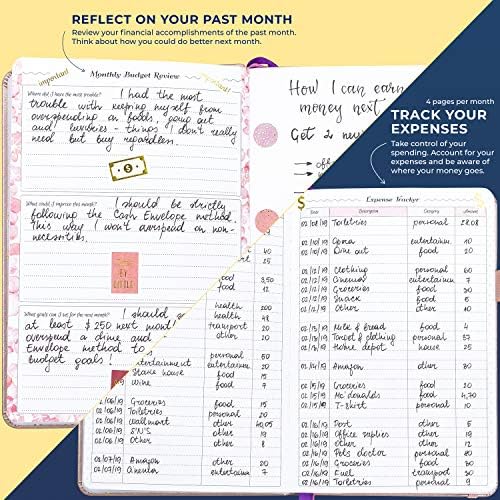 REFLECT ON YOUR PAST MONTH
Review your financial accomplishments of the past month.
Think about how you could do better next month.
important!
Monthly Budget Review
important!
Where did I have the most trouble?
I had the most
trouble with keeping myself from
overspending on foods, going out
and luxuries - things I don't really
need but buy regardless.
What could I improve this month?
I should be strictly
following the Cash Envelope method.
This way I won't overspend on non-
necessities.
BY
LITTLE
What goals can I set for the next month?
I should
at least $250 next mon
overspend a dime and
Envelope method to
budget goals!
How I can earn
money next
Get 2 new
→ off
4 pages per month
TRACK YOUR
EXPENSES
Take control of your
spending. Account for your
expenses and be aware of
where your money goes.
$
Expense Tracker
Date Description Category Amount
02/08/19 Toiletries personal 28.08
02/10/19 Opera entertainm. 10
02/10/19 Dine out food 20
02/12/19 Clothing personal 60
02/12/19 Cinema entertainm 7
02/12/19 Groceries food 30
02/12/19 Snack food 5
02/12/19 Other other 10
02/13/19 Milk & Bread food 4
02/13/19 Toilet & clothing personal 57
02/13/19 Home depot house 25
02/14/19 Amazon other 80
02/15/19 Groceries food 20
02/15/19 Mc'donalds food 4,70
02/15/19 T-shirt personal 10
02/16/19 Post other 5
02/16/19 Office supplies other 19
02/16/19 Other other 12
02/16/19 Pets doctor personal 80
02/16/19 Groceries food 30
02/16/19 Fuel transport 30
02/16/19 Toiletries personal 9
40
25
food 3,50
food 12
health 200
health 48
transport 20
other 10
personal 50
entertainment entertainm 20
Stake house food 15
Wine food 7
Groceries food 15
Toiletries personal 20
02/06/19 Wallmart other 40,05
02/06/19 other 19
02/06/19 Other other 8
02/07/19 Amazon other 20
02/07/19 Cinema entertainm. 7